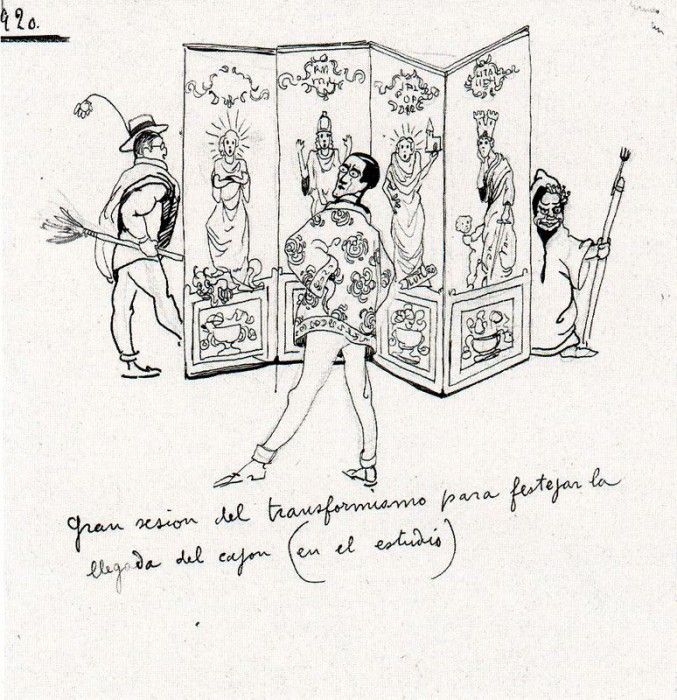 920.
gran sesion del transformismo para festejar la
llegada del cajon (en el estudio)